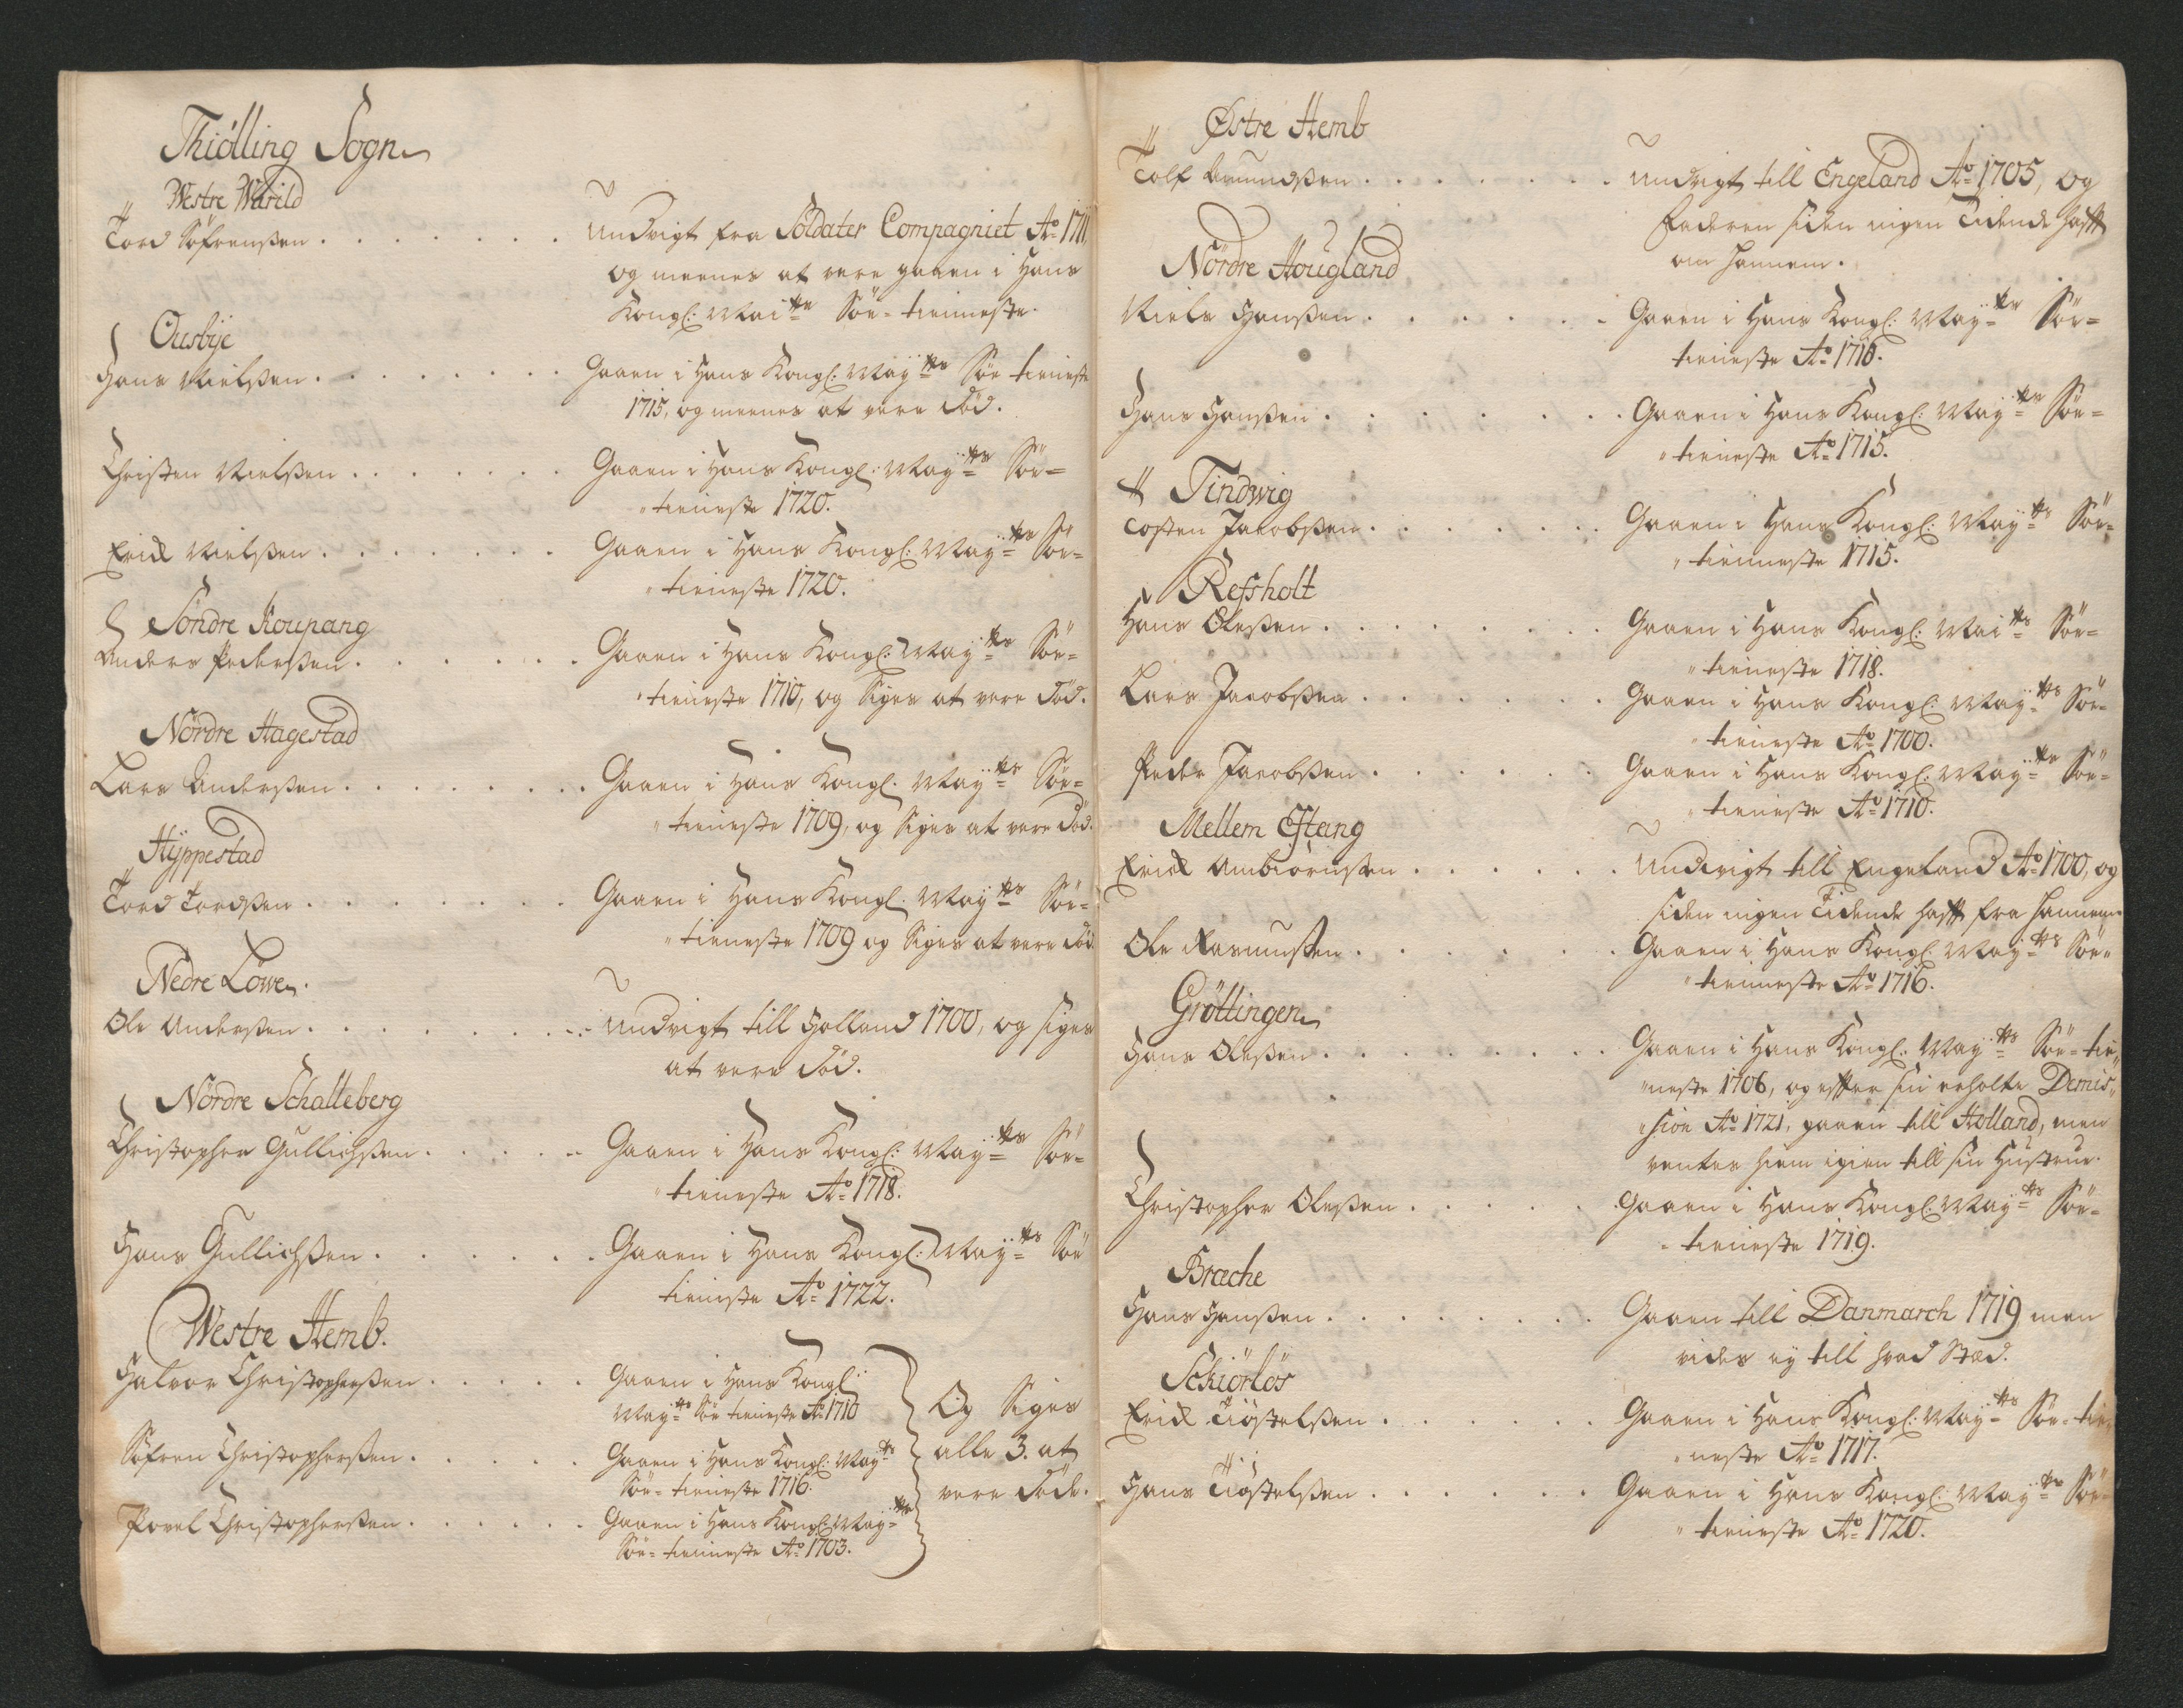 Thiölling Sogn
Westre Warild
Tord Söfrenßen . . . . . . . Undvigt fra Soldater Compagniet Ao 1711,
og meenes at vere gaaen i Hans
Kongl: Maitts Söe-tienneste.
Ousbye
Hans Nielßen . . . . . . . Gaaen i Hans Kongl: Mayts Söe tieneste
1715, og meenes at vere död.
Christen Nielßen . . . . . . . Gaaen i Hans Kongl: Mayts Söe-
tieneste 1720.
Erick Nielßen . . . . . . . Gaaen i Hans Kongl: Mayts Söe-
tieneste 1720.
Söndre Koupang
Anders Pederßen . . . . . . . Gaaen i Hans Kongl: Mayts Söe-
tieneste 1710, og Siges at vere död.
Nördre Hagestad
Lars Anderßen . . . . . . . Gaaen i Hans Kongl. Mayts Söe-
tieneste 1709, og Siges at vere död.
Hyppestad
Tord Tordßen . . . . . . . Gaaen i Hans Kongl. Mayts Söe-
tieneste 1709 og Siges at vere död.
Nedre Löwe.
Ole Anderßen . . . . . . . Undvigt till Holland 1700, og siges
at vere död.
Nördre Schalleberg
Christopher Gullichßen . . . . . Gaaen i Hans Kongl: Mayts Söe-
tieneste Ao 1718.
Hans Gullichßen . . . . . . . Gaaen i Hans Kongl: Mayts Söe
tieneste Ao 1722.
Westre Hemb.
Halvor Christopherßen . . . . . Gaaen i Hans Kongl:
Mayts Söe tieneste Ao 1710
Söfren Christopherßen . . . . . Gaaen i Hans Kongl: Mayts
Söe-tieneste 1716.
Povel Christopherßen . . . . . . Gaaen i Hans Kongl: Mayts
Söe-tienneste Ao 1703.
Og Siges
alle 3. at
vere döde.
Østre Hemb
Tolf Amundßen . . . . . . . Undvigt till Engeland Ao 1705, og
Faderen siden ingen Tidende hafft
om hannem.
Nördre Hougland
Niels Hanßen . . . . . . . Gaaen i Hans Kongl: Mayts Söe-
tieneste Ao 1710.
Hans Hanßen . . . . . . . Gaaen i Hans Kongl: Mayts Söe-
tieneste Ao 1715.
Tindwig
Tosten Jacobßen . . . . . . . Gaaen i Hans Kongl: Mayts Söe-
tienneste 1715.
Refsholt
Hans Oleßen . . . . . . . Gaaen i Hans Kongl: Maits Söe-
tieneste 1718.
Lars Jacobßen . . . . . . . Gaaen i Hans Kongl: Mayts Söe-
tieneste Ao 1700.
Peder Jacobßen . . . . . . . Gaaen i Hans Kongl: Mayts Söe-
tieneste Ao 1710.
Mellem Eftang
Erick Ambiörnßen . . . . . . Undvigt till Engeland Ao 1700, og
siden ingen Tidende hafft fra hannem.
Ole Rasmusßen . . . . . . Gaaen i Hans Kongl: Mayts Söe-
tienneste Ao 1716.
Gröttingen
Hans Oleßen . . . . . . . Gaaen i Hans Kongl: Mayts Söe-tie-
neste 1706, og efter sin erholte Demis-
sion Ao 1721, gaaen till Holland, men
ventes hiem igien till sin Hustrue.
Christopher Oleßen . . . . . . Gaaen i Hans Kongl: Mayts Söe-
tieneste 1719.
Bræche
Hans Hanßen . . . . . . . Gaaen till Danmarch 1719 men
vides ey till hvad Stæd.
Schiörlös
Erick Tiöstelßen . . . . . . Gaaen i Hans Kongl: Mayts Söe-tie-
neste Ao 1717.
Hans Tiöstelßen . . . . . . Gaaen i Hans Kongl: Mayts Söe-
tieneste Ao 1720.